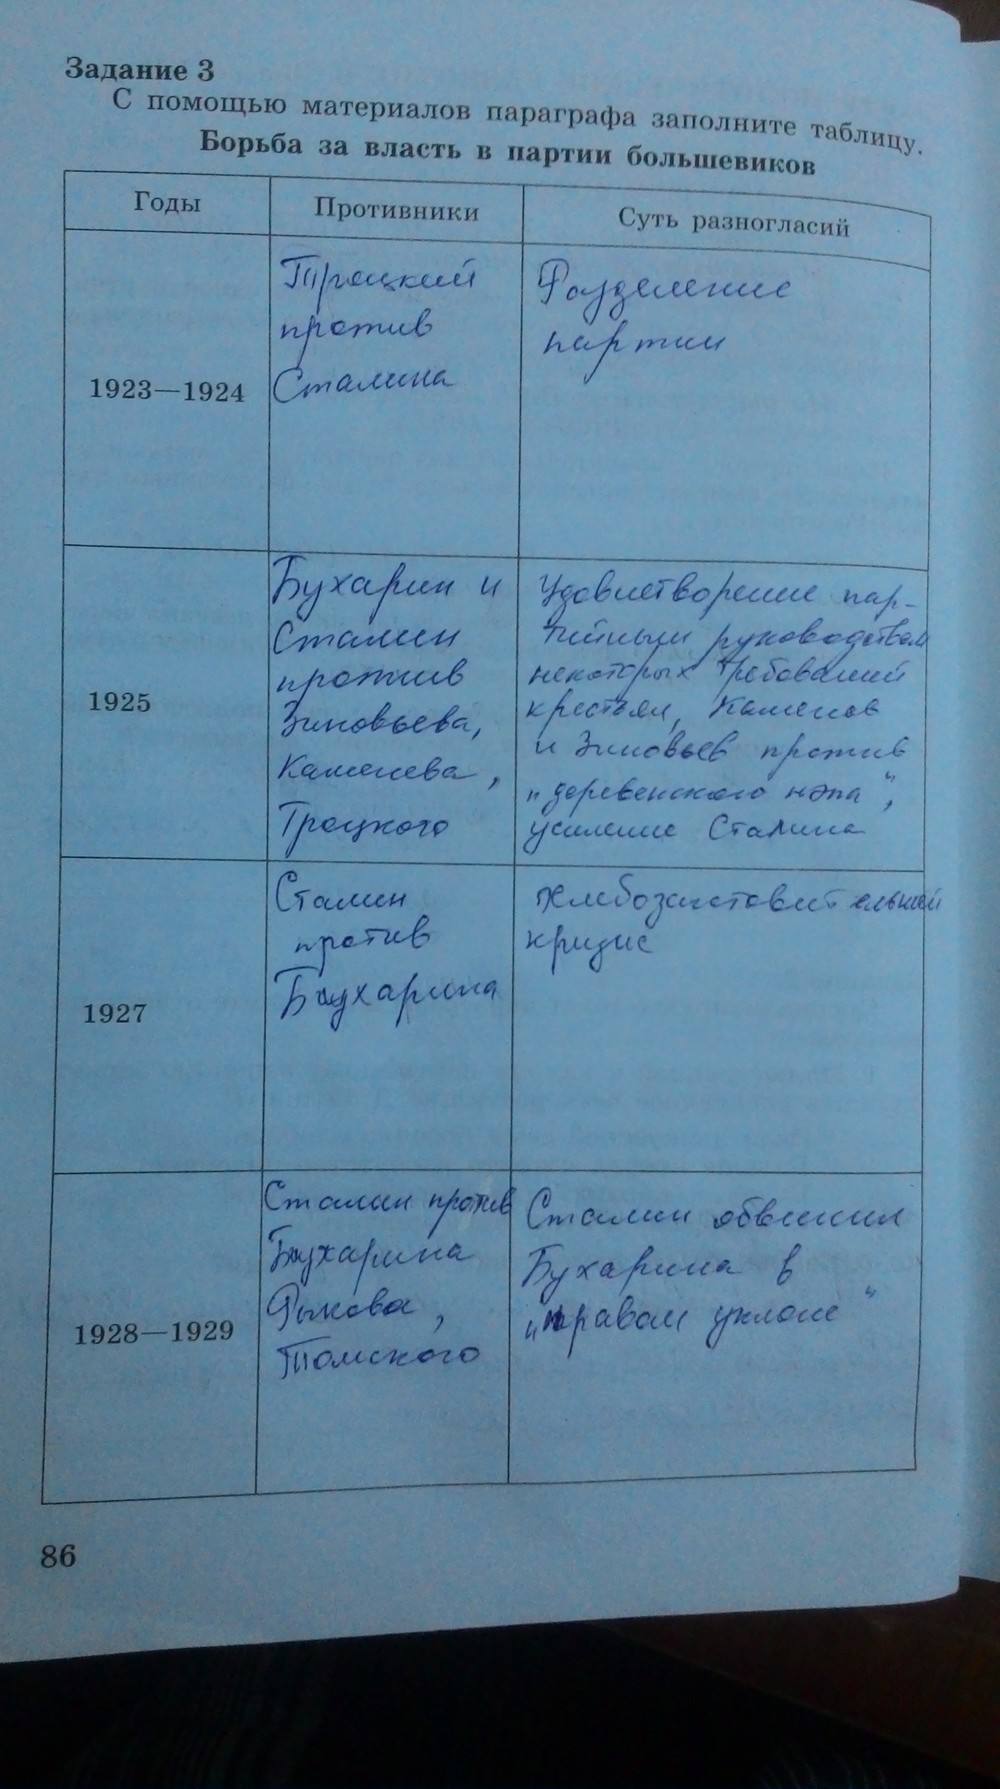 Задание 3
С помощью материалов параграфа заполните таблицу.
Борьба за власть в партии большевиков
Годы
Противники
Суть разногласий
1923—1924
Троцкий
против
Сталина
Разделение
партии
1925
Бухарин и
Сталин
против
Зиновьева,
Каменева,
Троцкого
Удовлетворение пар-
тийным руководством
некоторых требований
крестьян, Каменев
и Зиновьев против
„деревенского нэпа“,
усиление Сталина
1927
Сталин
против
Бухарина
Хлебозаготовительный
кризис
1928—1929
Сталин против
Бухарина
Рыкова,
Томского
Сталин обвинил
Бухарина в
„правом уклоне“
86